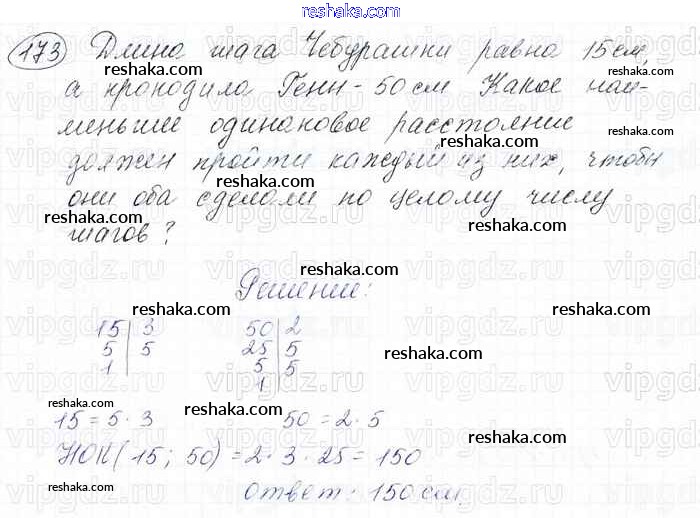 reshaka.com
173 Длина шага Чебурашки равна 15 см,
reshaka.com
а крокодила Гены - 50 см Какое наи-
reshaka.com
меньшее одинаковое расстояние
reshaka.com
должен пройти каждый из них, чтобы
reshaka.com
они оба сделали по целому числу
reshaka.com
шагов?
reshaka.com
Решение:
reshaka.com
15 | 3 50 | 2
5 | 5 25 | 5
1 | 5 | 5
1 |
reshaka.com
15 = 5 · 3 50 = 2 · 5
reshaka.com
НОК(15; 50) = 2 · 3 · 25 = 150
reshaka.com
ответ: 150 см.
reshaka.com